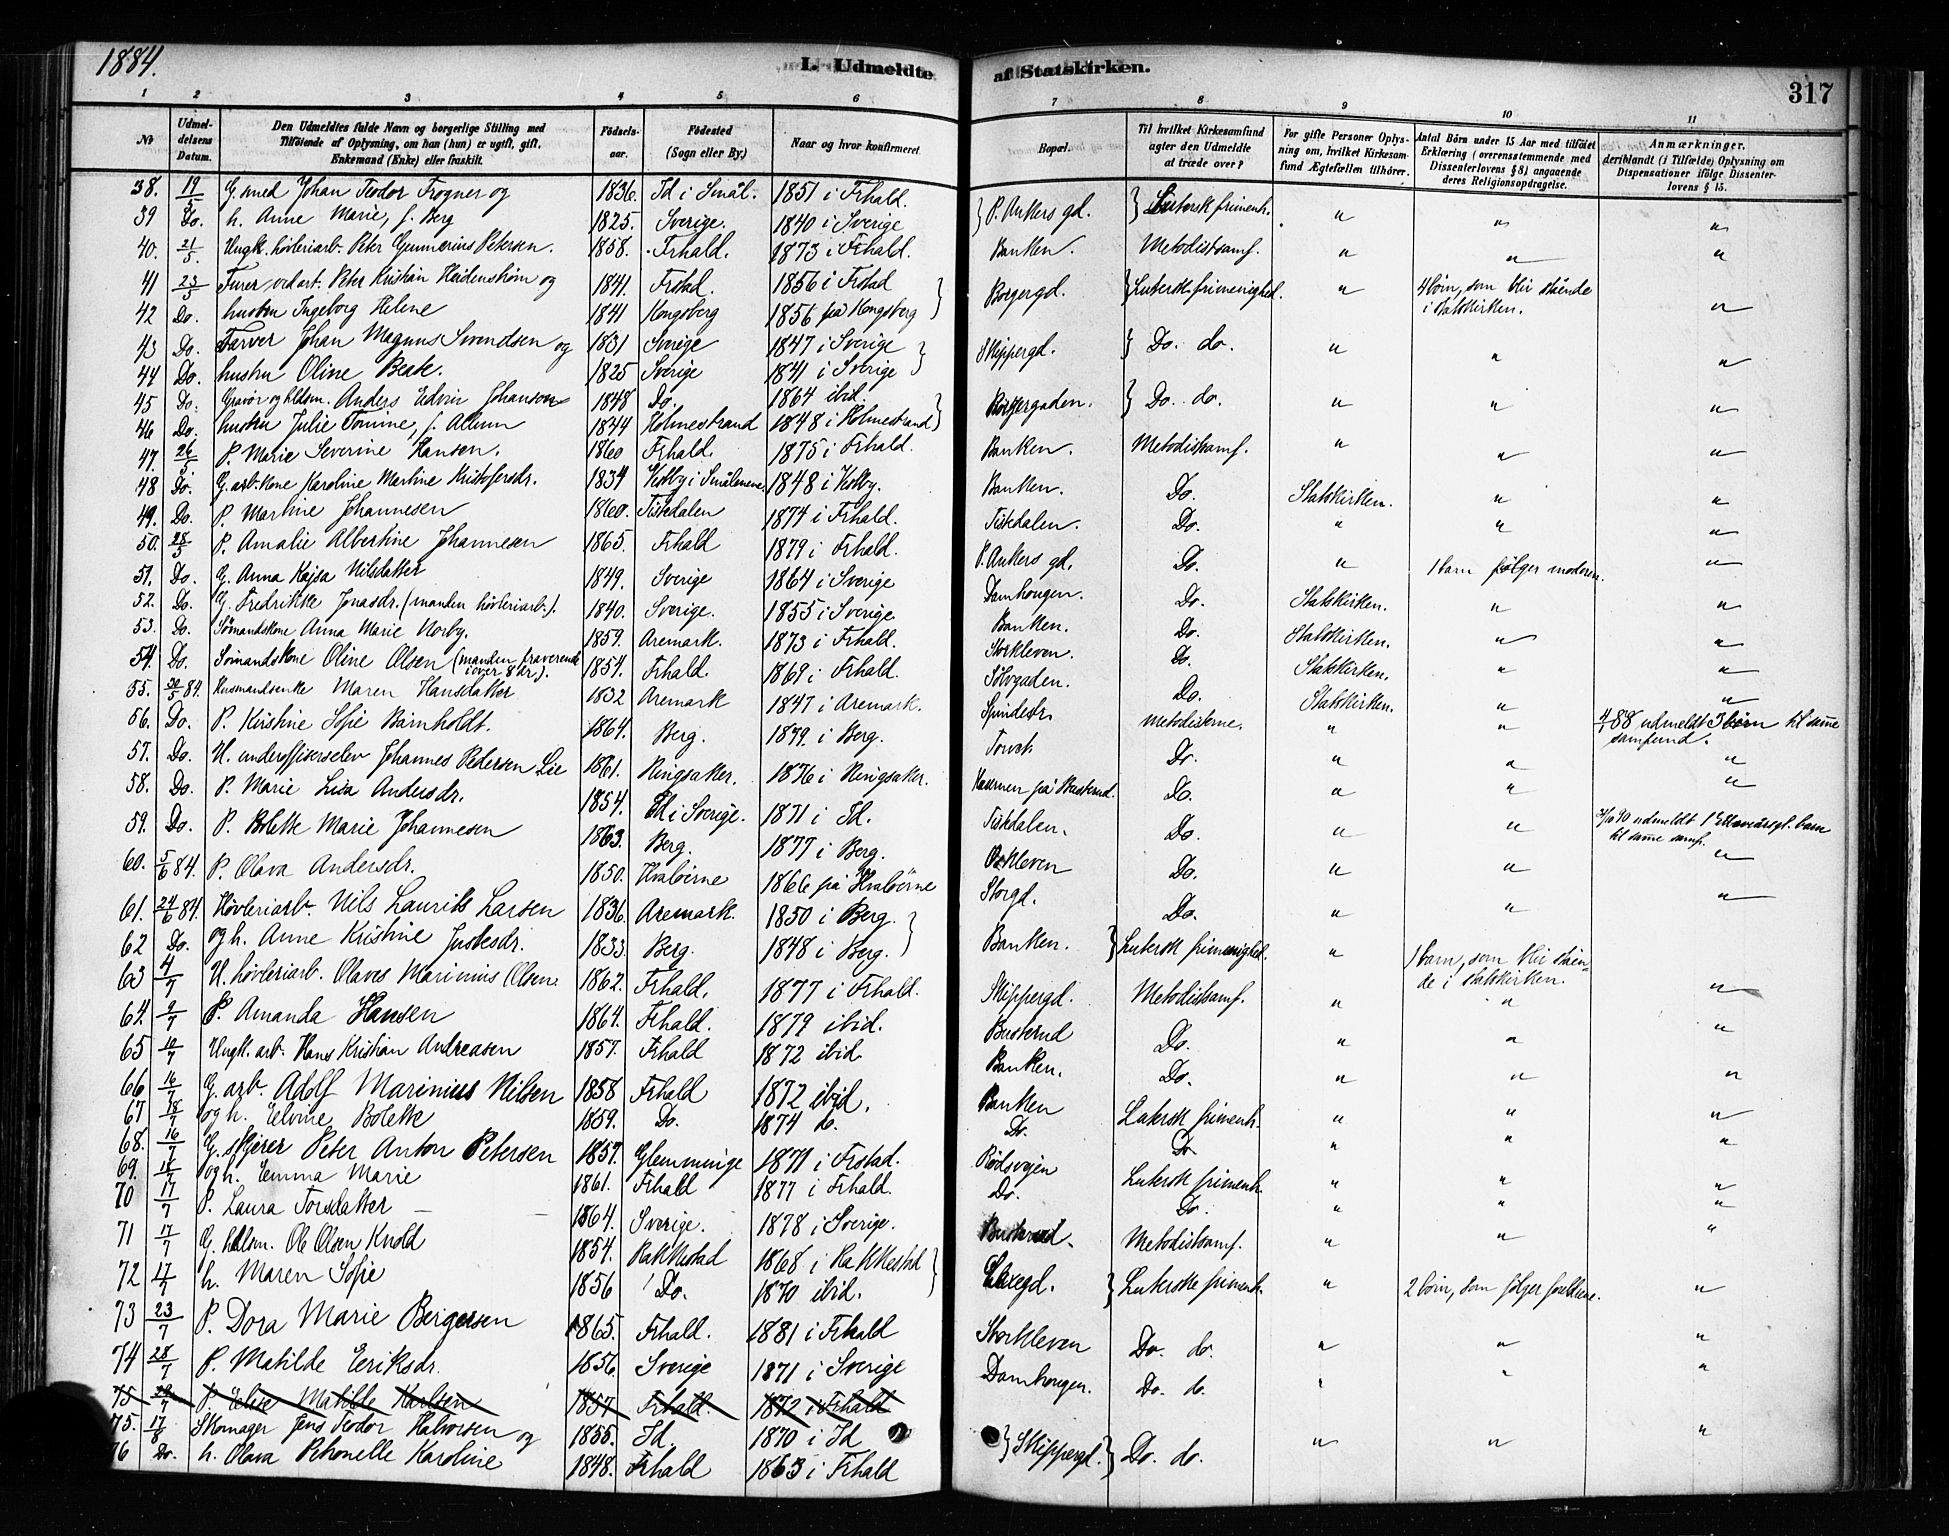 1884.
L. Udmeldte af Statskirken.
317
1 2 3 4 5 6 7 8 9 10 11
No
Udmel-
delsens
Datum.
Den Udmeldtes fulde Navn og borgerlige Stilling med
Tilföiende af Oplysning, om han (hun) er ugift, gift,
Enkemand (Enke) eller fraskilt.
Födsels-
aar.
Födested
(Sogn eller By.)
Naar og hvor konfirmeret.
Bopæl.
Til hvilket Kirkesamfund
agter den Udmeldte
at træde over?
For gifte Personer Oplys-
ning om, hvilket Kirkesam-
fund Ægtefællen tilhörer.
Antal Börn under 15 Aar med tilföiet
Erklæring (overensstemmende med
Dissenterlovens § 8) angaaende
deres Religionsopdragelse.
Anmærkninger,
deriblandt (i Tilfælde) Oplysning om
Dispensationer ifölge Dissenter-
lovens § 15.
38. 19/5 G. med Johan Teodor Trogner og 1836. Id i Smål. 1851 i Frhald. } P. Ankers gd. } Lutersk frimenh. " " "
39 Do. h. Anne Marie, f. Berg 1825. Sverige. 1840 i Sverige
40. 21/5 Ungk. høvleriarb. Peter Gunnerius Petersen. 1858. Frhald. 1873 i Frhald. Banken. Metodistsamf. " " "
41 23/5 Peter Kristian Heidenstrøm og 1841. Frstad. 1856 i Frstad } Borgergd. } Lutersk frimenighed. " 4 børn, som blir stående
42 Do. hustru Ingeborg Helene 1841 Kongsberg 1856 på Kongsberg i statskirken. "
43 Do. Farver Johan Magnus Svendsen og 1831 Sverige 1847 i Sverige } Skippergd. } Do. do. " " "
44 Do. hustru Oline Beate. 1825 Sverige 1841 i Sverige
45 Do. Gravør og hdsm. Anders Edvin Johanson 1848 Do. 1864 ibid. } Borgergaden. } Do. do. " " "
46 Do. hustru Julie Tomine, f. Allum 1844 Holmestrand 1848 i Holmestrand
47. 26/5 P. Marie Severine Hansen. 1860 Frhald. 1875 i Frhald. Banken. Metodistsamf. " " "
48 Do. G. arb. kone Karoline Martine Kristofersdr. 1834 i Smålenene 1848 i Banken. Do. Statskirken. " "
49. Do. P. Martine Johannesen 1860. Tistedalen 1874 i Frhald. Tistedalen. Do. " " "
50. 28/5 P. Amalie Albertine Johannesen 1865. Frhald 1879 i Frhald. P. Ankers gd. Do. " 1 barn følger moderen. "
51. Do. G. Anna Kajsa Nilsdatter 1849. Sverige 1864 i Sverige Damhougen. Do. Statskirken. " "
52. Do. G. Fredrikke Jonasdr. (manden høvleriarb.). 1840. Sverige. 1855 i Sverige Banken. Do. Statskirken. " "
53. Do. Sømandskone Anna Marie Norby. 1859. Aremark. 1873 i Frhald. Storkleven. Do. Statskirken. " "
54. Do. Sømandskone Oline Olsen (manden fraværende
i over 8 år). 1854. Frhald. 1869 i Frhald. Sølvgaden. Do. Statskirken. " "
55. 30/5 84. Husmandsenke Maren Hansdatter 1832 Aremark 1847 i Aremark. Metodisterne. " " 4/7 88 udmeldt 3 børn til samme
samfund.
56. Do. P. Kristine Sofie Barnholdt. 1864. Berg. 1879. i Berg. Torvet Do. " " "
57. Do. U. underoffiserselev Johannes Pedersen Lie 1861. Ringsaker. 1876 i Ringsaker. Kasernen på Busterud. Do. " " "
58. Do. P. Marie Lisa Andersdr. 1854. Ed i Sverige. 1871 i Id. Tistedalen. Do. " " udmeldt 1 barn
til samme samf.
59. Do. P. Bolette Marie Johannesen 1863. Berg. 1877 i Berg. Do. " " "
60. 5/6 84. P. Olava Andersdr. 1850. Hvaløerne 1866 på Hvaløerne Storgd. Do. " " "
61. 24/6 84. Høvleriarb. Nils Laurits Larsen 1836. Aremark. 1850 i Berg. } Banken. } Lutersk frimenighed. " 1 barn, som blir ståen-
62 Do. og h. Anne Kristine Justesdr. 1833 Berg. 1848 i Berg. de i statskirken. "
63 4/7 U. høvleriarb. Olaves Marinius Olsen. 1862. Frhald. 1877 i Frhald. Skippergd. Metodistsamf. " " "
64. 9/7 P. Amanda Hansen 1864. Frhald. 1879 ibid. Busterud Do. " " "
65 10/7 Ungk. arb. Hans Kristian Andreasen 1857. Frhald 1872 ibid Banken. Do. " " "
66 16/7 G. arb. Adolf Marinius Nilsen 1858 Frhald 1872 ibid. Banken Lutersk frimenh. " " "
67 18/7 og h. Elvine Bolette 1859. Do. 1874 do. Do. Do " " "
68. 16/7 G. skjører Peter Anton Petersen 1857. Glemminge 1871 i Frstad. Rødsvejen Lutersk frimenh. " " "
69. 18/7 og h. Emma Marie 1861. Frhald 1877 i Frhald. Do. Do. " " "
70 17/7 P. Laura Torsdatter 1864. Sverige. 1878 i Sverige. Busterud. Metodistsamf. " " "
71 17/7 G. hdlsm. Ole Olsen Knold 1854. Rakkestad 1868 i Rakkestad } } Luterske frimenh. " 2 børn, som følger forældrene. "
72 17/7 h. Maren Sofie 1856 Do. 1870 ibid.
73 23/7 P. Dora Marie Bergersen 1865. Frhald. 1881 i Frhald Storkleven Do. do. " " "
74 28/7 P. Matilde Eriksdr. 1856 Sverige 1871 i Sverige Damhougen. Do. do. " " "
75 29/7 P. Elise Matilde Karlsen 1857 Frhald. 1872 i Frhald
75. 17/8 Skomager Jens Teodor Halvorsen og 1855. Id. 1870 i Id } Skippergd. } Do. do. " " "
76 Do. h. Olava Petronelle Karoline 1848. Frhald 1863 i Frhald